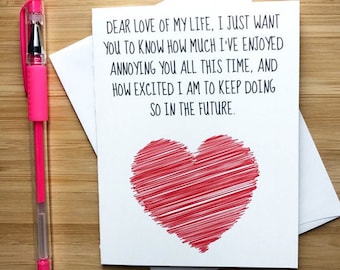 DEAR LOVE OF MY LIFE, I JUST WANT
YOU TO KNOW HOW MUCH I'VE ENJOYED
ANNOYING YOU ALL THIS TIME, AND
HOW EXCITED I AM TO KEEP DOING
SO IN THE FUTURE.